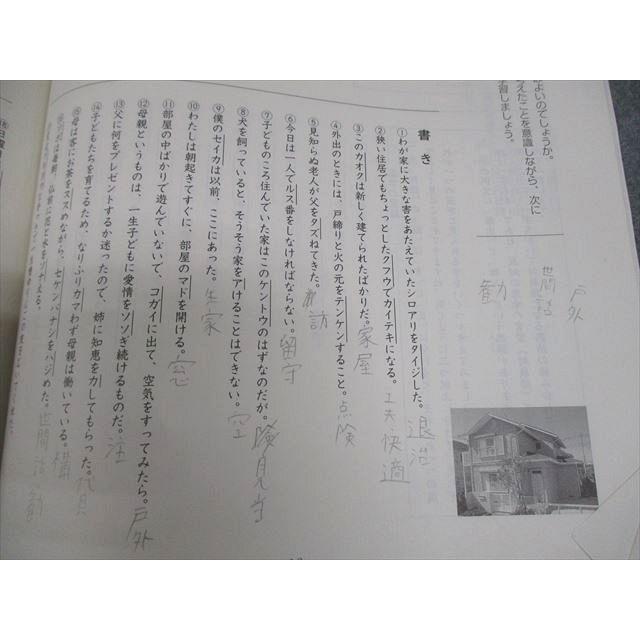 よいのでしょうか。
えたことを意識しながら、次に
習しましょう。
戸外
世間話
勧
書き
①わが家に大きな害をあたえていたシロアリをタイジした。退治
②狭い住居でもちょっとしたクフウでカイテキになる。工夫 快適
③このカオクは新しく建てられたばかりだ。家屋
④外出のときには、戸締りと火の元をテンケンすること。点険
⑤見知らぬ老人が父をタズねてきた。訪
⑥今日は一人でルス番をしなければならない。留守
⑦子どものころ住んでいた家はこのケントウのはずなのだが。見当
⑧犬を飼っていると、そうそう家をアけることはできない。空
⑨僕のセイカは以前、ここにあった。生家
⑩わたしは朝起きてすぐに、部屋のマドを開ける。窓
⑪部屋の中ばかりで遊んでいないで、コガイに出て、空気をすってみたら。戸外
⑫母親というものは、一生子どもに愛情をソソぎ続けるものだ。注
⑬父に何をプレゼントするか迷ったので、姉に知恵をカしてもらった。貸
⑭子どもたちを育てるため、なりふりカマわず母親は働いている。構
⑮母は客にお茶をススめながら、セケンバナシをハジめた。世間話 勧